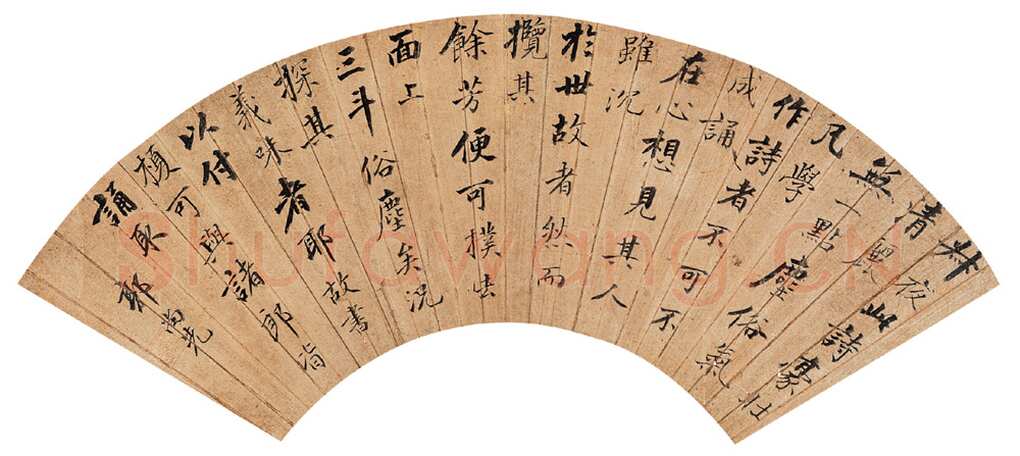 叔夜此詩豪壯
清麗
無一點塵俗氣
凡學
作詩者不可不
成誦
在心想見其人
雖沉
於世故者然而
攬其
餘芳便可撲去
面上
三斗俗塵矣況
探其
義味者耶故書
以付
榎可與諸郎皆
誦取
郭尚先
Shufawang.CN